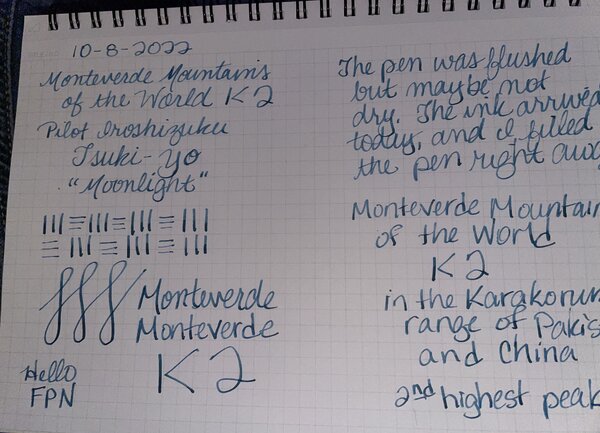 10-8-2022
Monteverde Mountains
of the World K2
Pilot Iroshizuku
Tsuki-yo
"Moonlight"
Monteverde
Monteverde
K2
Hello
FPN
The pen was flushed
but maybe not
dry. The ink arrived
today, and I filled
the pen right away
Monteverde Mountain
of the World
K2
in the Karakorum
range of Pakis
and China
2nd highest peak